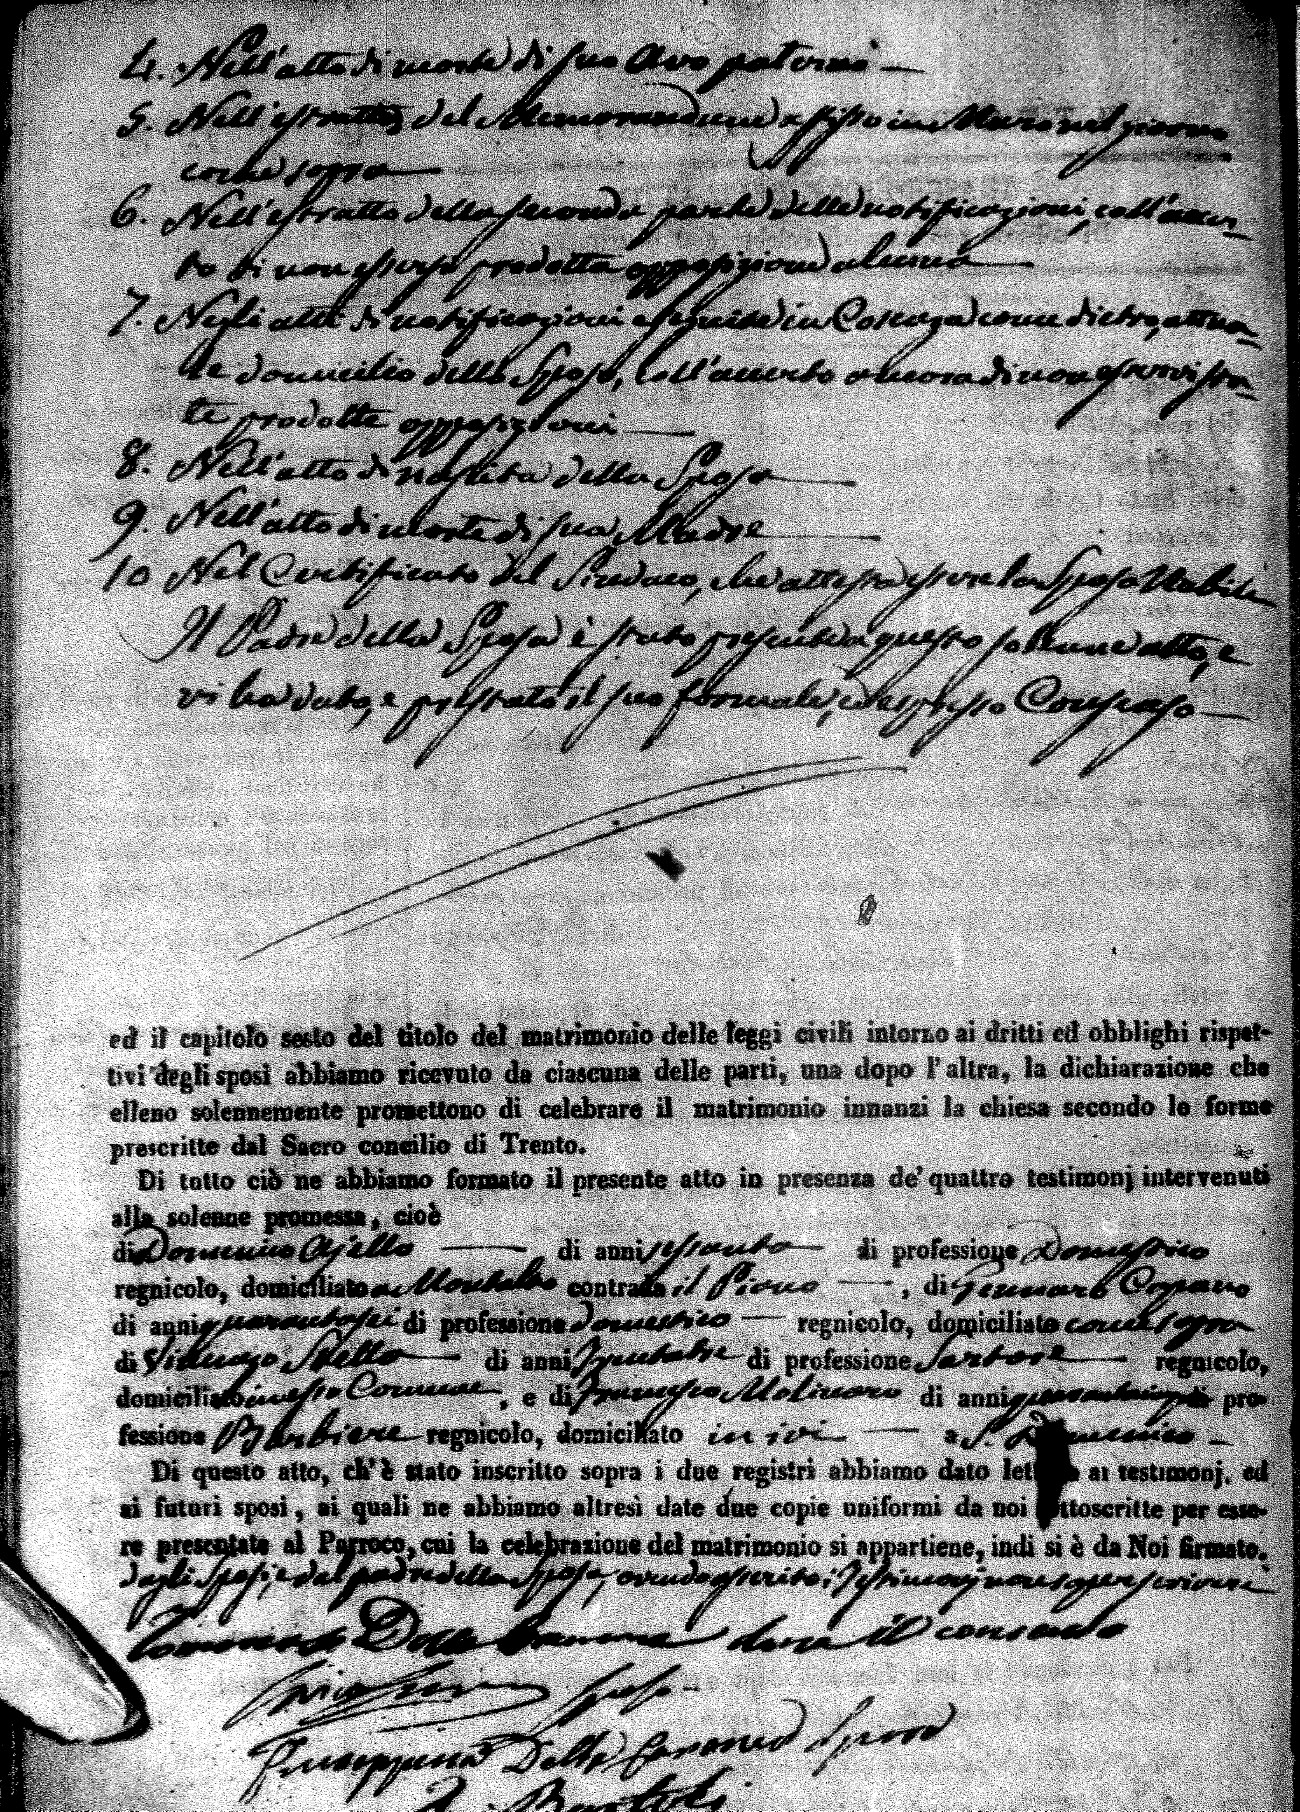 4. Nell'atto di morte di suo Avo paterno —
5. Nell'estratto del Memorandum affisso in Marzo nel giorno
come sopra —
6. Nell'estratto della seconda parte delle notificazioni, coll'accer
to di non essersi prodotta opposizione alcuna —
7. Negli atti di notificazioni eseguite in Cosenza come dietro, attua
le domicilio dello Sposo, coll'accerto ancora di non esservi sta
te prodotte opposizioni —
8. Nell'atto di nascita della Sposa —
9. Nell'atto di morte di sua Madre —
10 Nel Certificato del Sindaco, che attesta essere la Sposa Nubile
Il Padre della Sposa è stato presente a questo solenne atto, e
vi ha dato, e prestato il suo formale, ed espresso Consenso —
ed il capitolo sesto del titolo del matrimonio delle leggi civili intorno ai dritti ed obblighi rispet-
tivi degli sposi abbiamo ricevuto da ciascuna delle parti, una dopo l'altra, la dichiarazione che
elleno solennemente promettono di celebrare il matrimonio innanzi la chiesa secondo le forme
prescritte dal Sacro concilio di Trento.
Di tutto ciò ne abbiamo formato il presente atto in presenza de' quattro testimonj intervenuti
alla solenne promessa, cioè
di Domenico Ajello — di anni sessanta — di professione Domestico
regnicolo, domiciliato a Montalto contrada il Piano — , di Gennaro
di anni quarantasei di professione domestico — regnicolo, domiciliato come sopra
di Stella — di anni trentatre di professione Sartore — regnicolo,
domiciliato in esso Comune , e di Francesco Molinaro di anni di pro-
fessione Barbiere regnicolo, domiciliato in ivi — a S. Domenico —
Di questo atto, ch'è stato inscritto sopra i due registri abbiamo dato ai testimonj. ed
ai futuri sposi, ai quali ne abbiamo altresì date due copie uniformi da noi sottoscritte per esse-
re presentate al Parroco, cui la celebrazione del matrimonio si appartiene, indi si è da Noi firmato.
dagli Sposi, e dal padre della Sposa, avendo asserito i Testimonj non sapere scrivere
Tommaso Dalla da il consenso
Sposo
Giuseppina Sposa